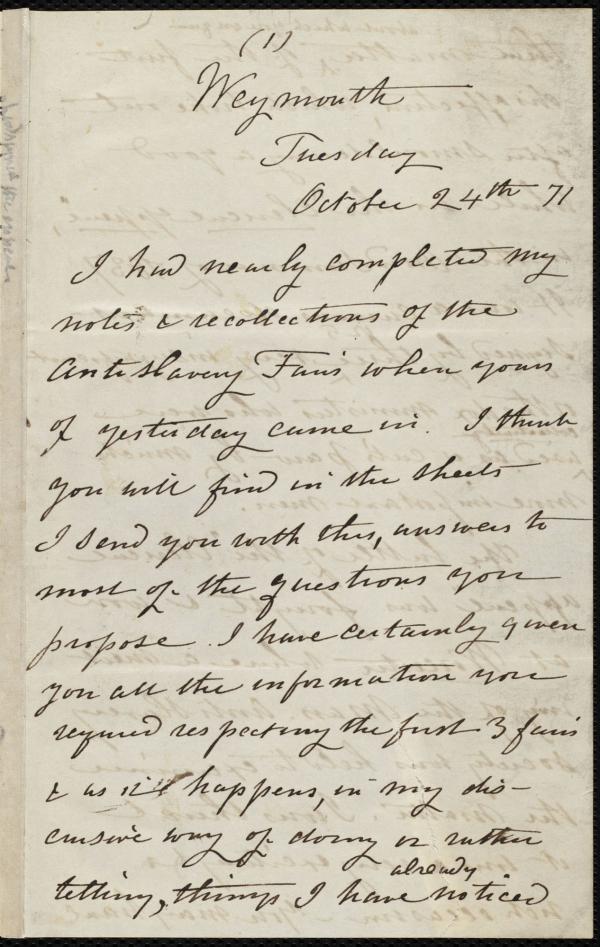 (1)
Weymouth
Tuesday
October 24th 71
I had nearly completed my
notes & recollections of the
Antislavery Fairs when yours
of yesterday came in. I think
you will find in the sheets
I send you with this, answers to
most of the questions you
propose. I have certainly given
you all the information you
required respecting the first 3 fairs
& as it happens, in my dis-
cursive way of doing or rather
already
telling, things I have noticed